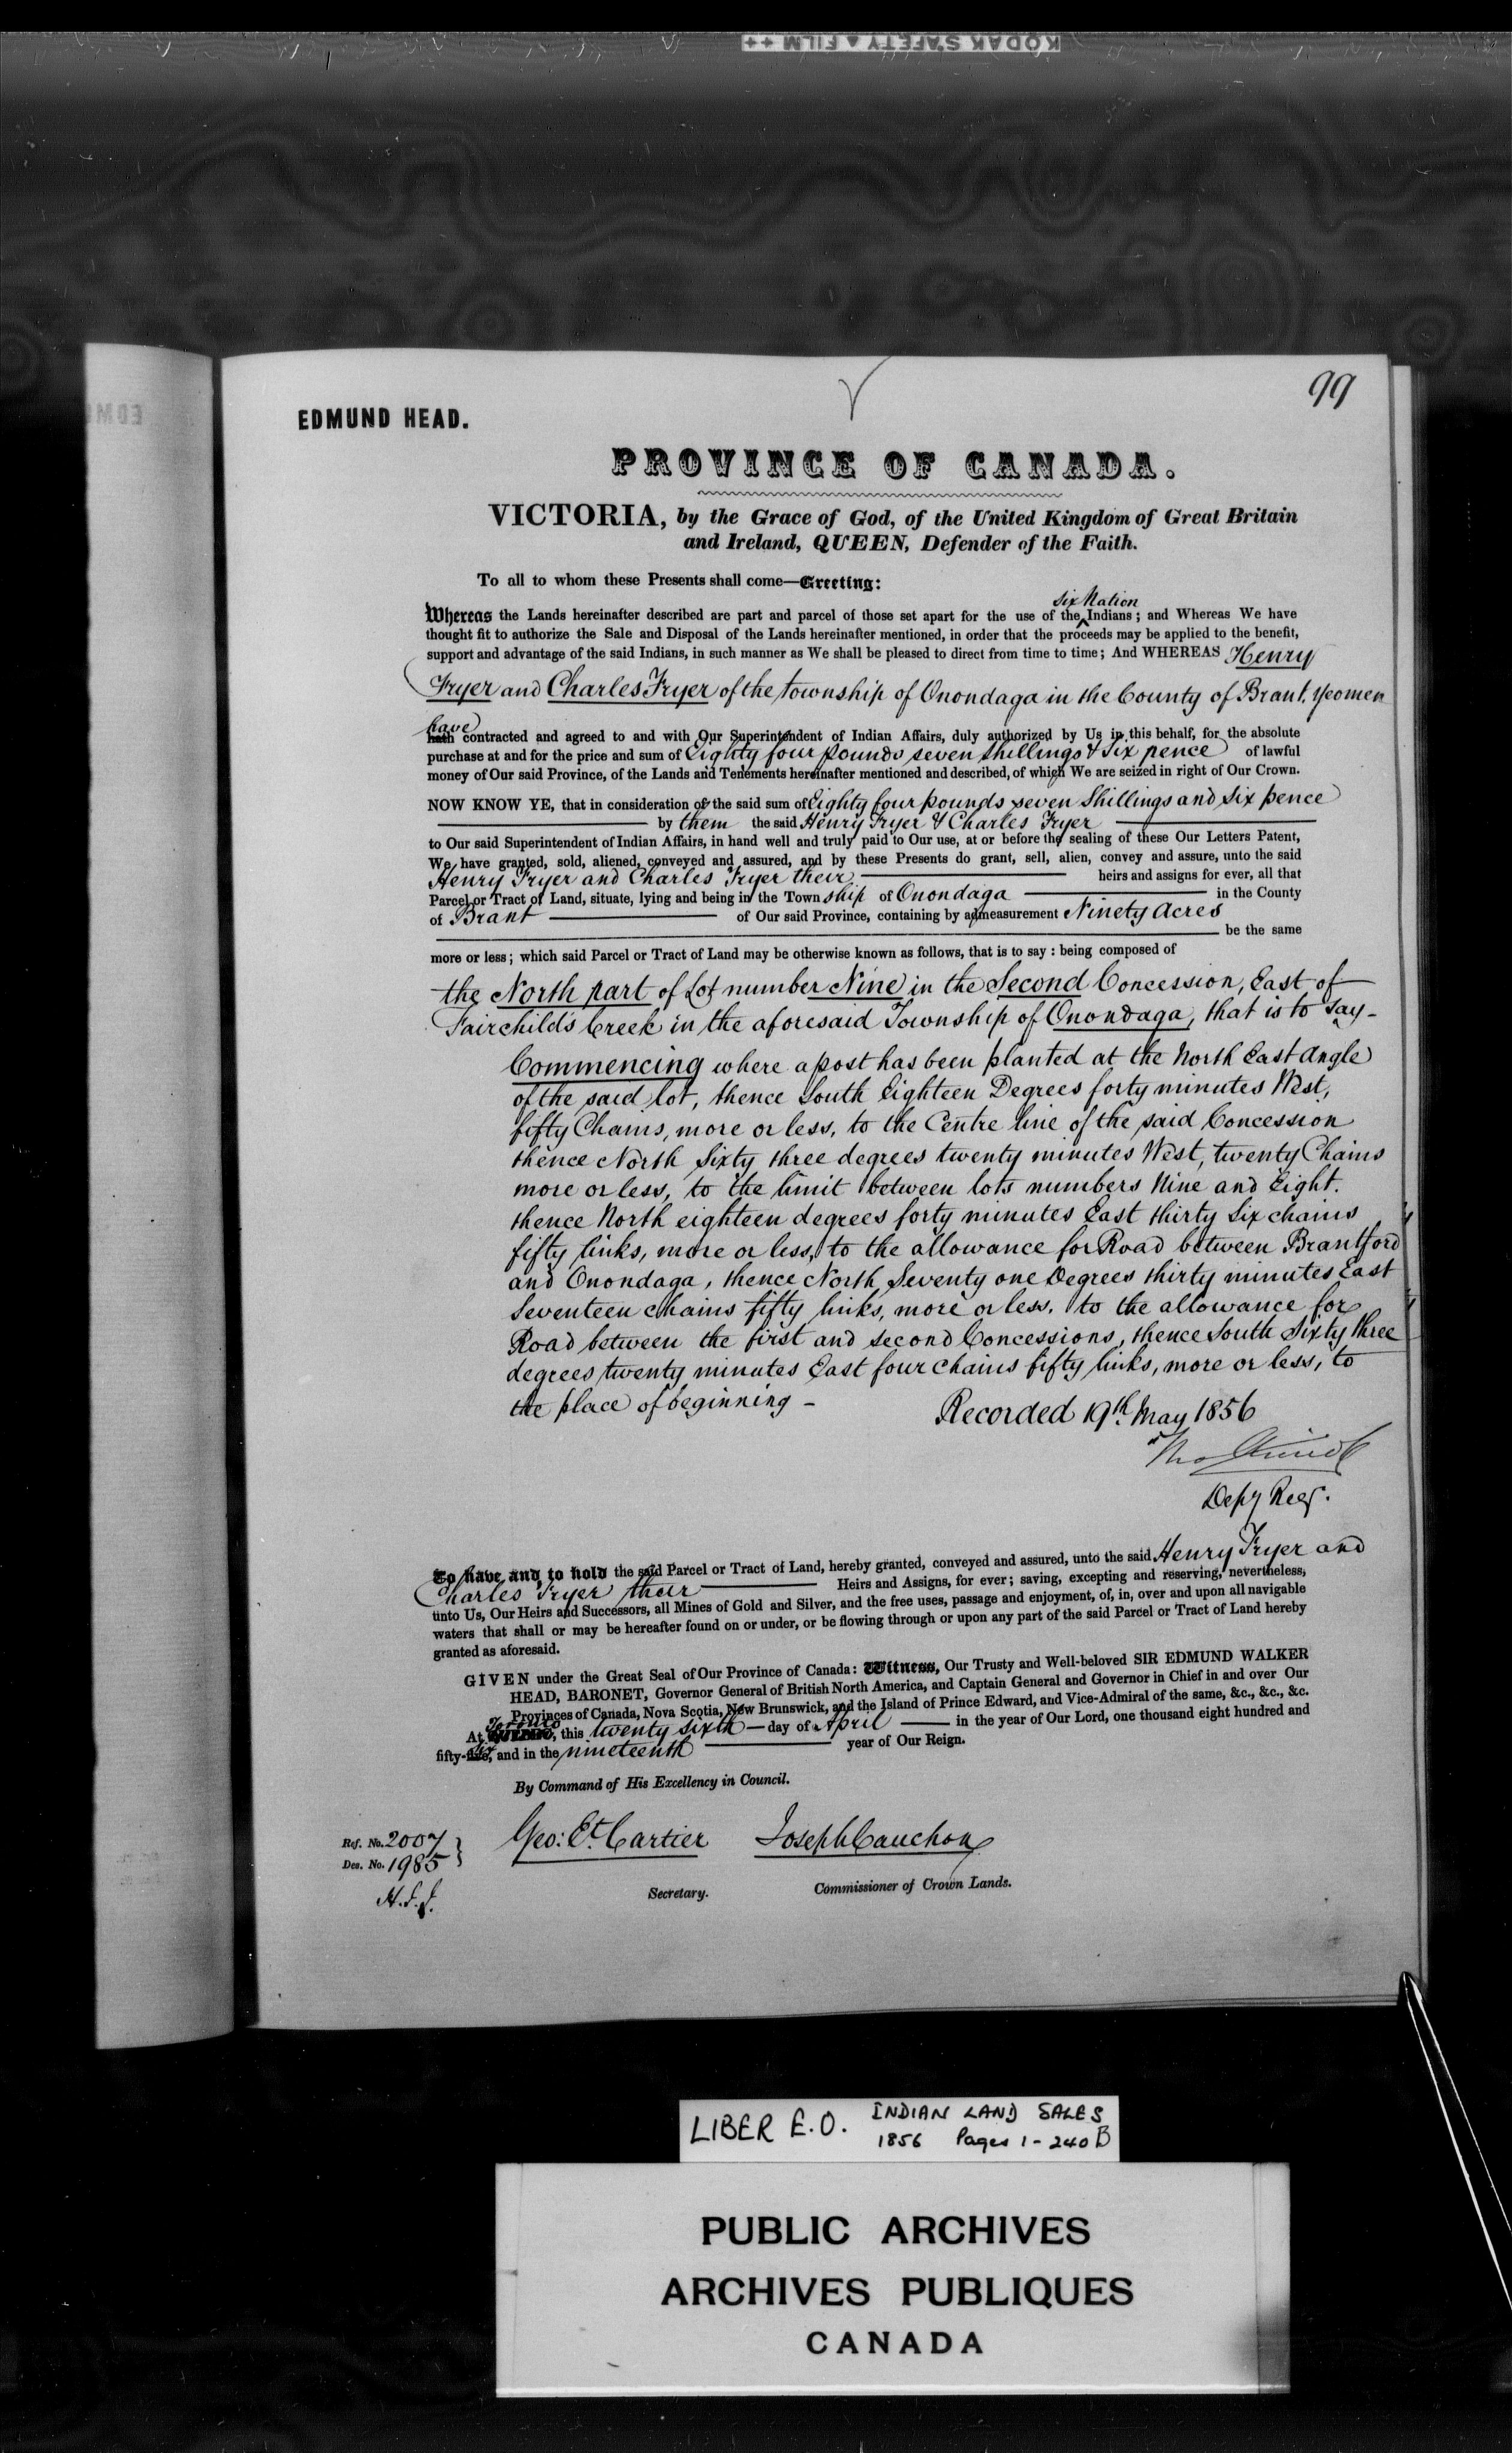 KODAK SAFETY ▲ FILM ++
99
EDMUND HEAD.
PROVINCE OF CANADA.
VICTORIA, by the Grace of God, of the United Kingdom of Great Britain
and Ireland, QUEEN, Defender of the Faith.
To all to whom these Presents shall come—Greeting:
Six Nation
Whereas the Lands hereinafter described are part and parcel of those set apart for the use of the ^ Indians; and Whereas We have
thought fit to authorize the Sale and Disposal of the Lands hereinafter mentioned, in order that the proceeds may be applied to the benefit,
support and advantage of the said Indians, in such manner as We shall be pleased to direct from time to time; And WHEREAS Henry
Fryer and Charles Fryer of the township of Onondaga in the County of Brant. Yeomen
have
hath contracted and agreed to and with Our Superintendent of Indian Affairs, duly authorized by Us in this behalf, for the absolute
purchase at and for the price and sum of Eighty four pounds seven shillings & six pence of lawful
money of Our said Province, of the Lands and Tenements hereinafter mentioned and described, of which We are seized in right of Our Crown.
NOW KNOW YE, that in consideration of the said sum of Eighty four pounds seven Shillings and Six pence
by them the said Henry Fryer & Charles Fryer
to Our said Superintendent of Indian Affairs, in hand well and truly paid to Our use, at or before the sealing of these Our Letters Patent,
We have granted, sold, aliened, conveyed and assured, and by these Presents do grant, sell, alien, convey and assure, unto the said
Henry Fryer and Charles Fryer their heirs and assigns for ever, all that
Parcel or Tract of Land, situate, lying and being in the Town ship of Onondaga in the County
of Brant of Our said Province, containing by admeasurement Ninety Acres
be the same
more or less; which said Parcel or Tract of Land may be otherwise known as follows, that is to say: being composed of
the North part of Lot number Nine in the Second Concession, East of
Fairchild's Creek in the aforesaid Township of Onondaga, that is to say-
Commencing where a post has been planted at the North East Angle
of the said lot, thence South Eighteen Degrees forty minutes West,
fifty Chains, more or less, to the Centre line of the said Concession
thence North Sixty three degrees twenty minutes West, twenty Chains
more or less, to the limit between lots numbers Nine and Eight.
thence North eighteen degrees forty minutes East thirty Six chains
fifty links, more or less, to the allowance for Road between Brantford
and Onondaga, thence North Seventy one Degrees thirty minutes East
Seventeen chains fifty links, more or less, to the allowance for
Road between the first and second Concessions, thence South Sixty three
degrees twenty minutes East four chains fifty links, more or less, to
the place of beginning -
Recorded 19th May 1856
Depy Regr.
To have and to hold the said Parcel or Tract of Land, hereby granted, conveyed and assured, unto the said Henry Fryer and
Charles Fryer their Heirs and Assigns, for ever; saving, excepting and reserving, nevertheless,
unto Us, Our Heirs and Successors, all Mines of Gold and Silver, and the free uses, passage and enjoyment, of, in, over and upon all navigable
waters that shall or may be hereafter found on or under, or be flowing through or upon any part of the said Parcel or Tract of Land hereby
granted as aforesaid.
GIVEN under the Great Seal of Our Province of Canada: Witness, Our Trusty and Well-beloved SIR EDMUND WALKER
HEAD, BARONET, Governor General of British North America, and Captain General and Governor in Chief in and over Our
Provinces of Canada, Nova Scotia, New Brunswick, and the Island of Prince Edward, and Vice-Admiral of the same, &c., &c., &c.
Toronto
At QUEBEC, this twenty sixth — day of April in the year of Our Lord, one thousand eight hundred and
six
fifty-five, and in the nineteenth year of Our Reign.
By Command of His Excellency in Council.
Ref. No. 2007
Des. No. 1985
Geo: Et. Cartier Joseph Cauchon
Secretary. Commissioner of Crown Lands.
LIBER E.O. INDIAN LAND SALES
1856 Pages 1-240 B
PUBLIC ARCHIVES
ARCHIVES PUBLIQUES
CANADA